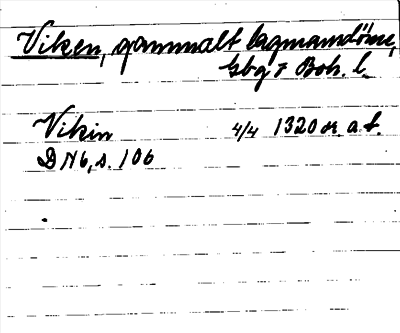 Viken, gammalt lagmansdöme,
Gbg o Boh. l.
Vikin 4/4 1320 or. a.f.
DN6, s. 106